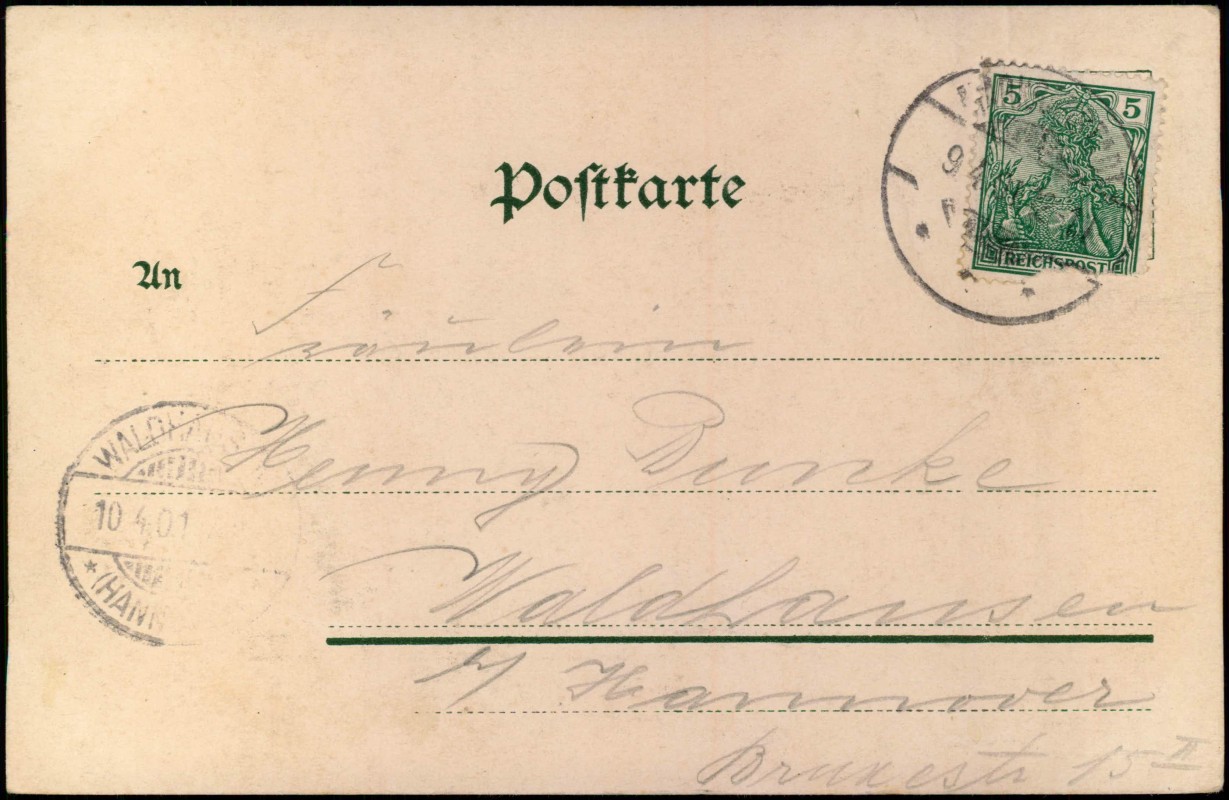 5 5
REICHSPOST
9 4
Postkarte
An
Fräulein
Henny Bunke
WALDHAUS
10 4.01
*(HANN
Waldhausen
b/ Hannover
15 II